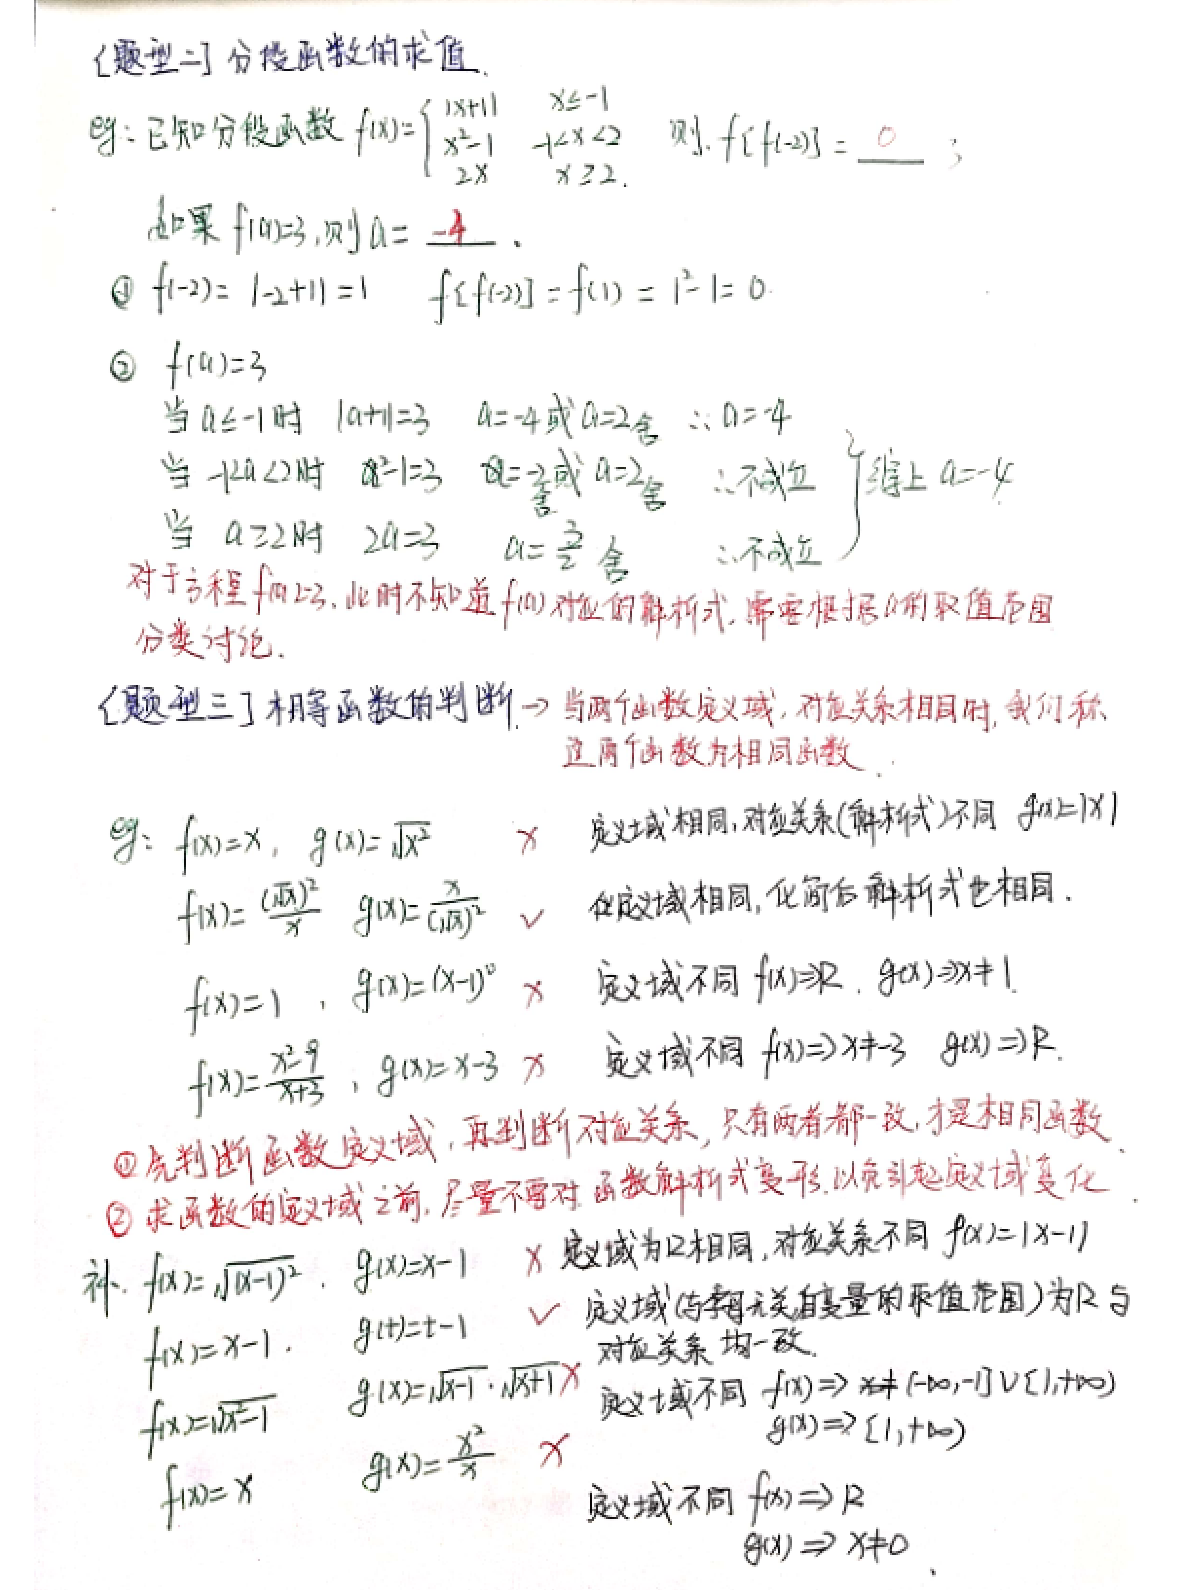 【题型二】分段函数的求值.
eg:已知分段函数 f(x)={ |x+1| x≤-1
x²-1 -1<x<2 则.f[f(-2)]= 0 ;
2x x≥2.
如果f(a)=3,则a= -4 .
① f(-2)= |-2+1|=1 f[f(-2)]=f(1)=1²-1=0.
② f(a)=3
当a≤-1时 |a+1|=3 a=-4或a=2舍 ∴a=-4
当-1<a<2时 a²-1=3 a=-2舍或a=2舍 ∴不成立 }综上a=-4
当 a≥2时 2a=3 a=3/2 舍 ∴不成立
对于方程f(a)=3,此时不知道f(a)对应的解析式,需要根据a的取值范围
分类讨论.
【题型三】相等函数的判断.→ 当两个函数定义域,对应关系相同时,我们称
这两个函数为相同函数.
eg: f(x)=x, g(x)=√x² × 定义域相同,对应关系(解析式)不同 g(x)=|x|
f(x)=(√x)²/x g(x)=x/(√x)² ✓ 定义域相同,化简后解析式也相同.
f(x)=1 , g(x)=(x-1)⁰ × 定义域不同 f(x)⇒R. g(x)⇒x≠1.
f(x)=x²-9/x+3 , g(x)=x-3 × 定义域不同 f(x)⇒x≠-3 g(x)⇒R.
①先判断函数定义域,再判断对应关系,只有两者都一致,才是相同函数.
②求函数的定义域之前,尽量不要对函数解析式变形.以免引起定义域变化.
补. f(x)=√(x-1)². g(x)=x-1 × 定义域为R相同,对应关系不同 f(x)=|x-1|
f(x)=x-1. g(t)=t-1 ✓ 定义域(与字母无关,自变量的取值范围)为R与
对应关系均一致.
f(x)=√x²-1 g(x)=√x-1·√x+1 × 定义域不同 f(x)⇒ (-∞,-1]∪[1,+∞)
g(x)⇒[1,+∞)
f(x)=x g(x)=x²/x × 定义域不同 f(x)⇒R
g(x)⇒x≠0.